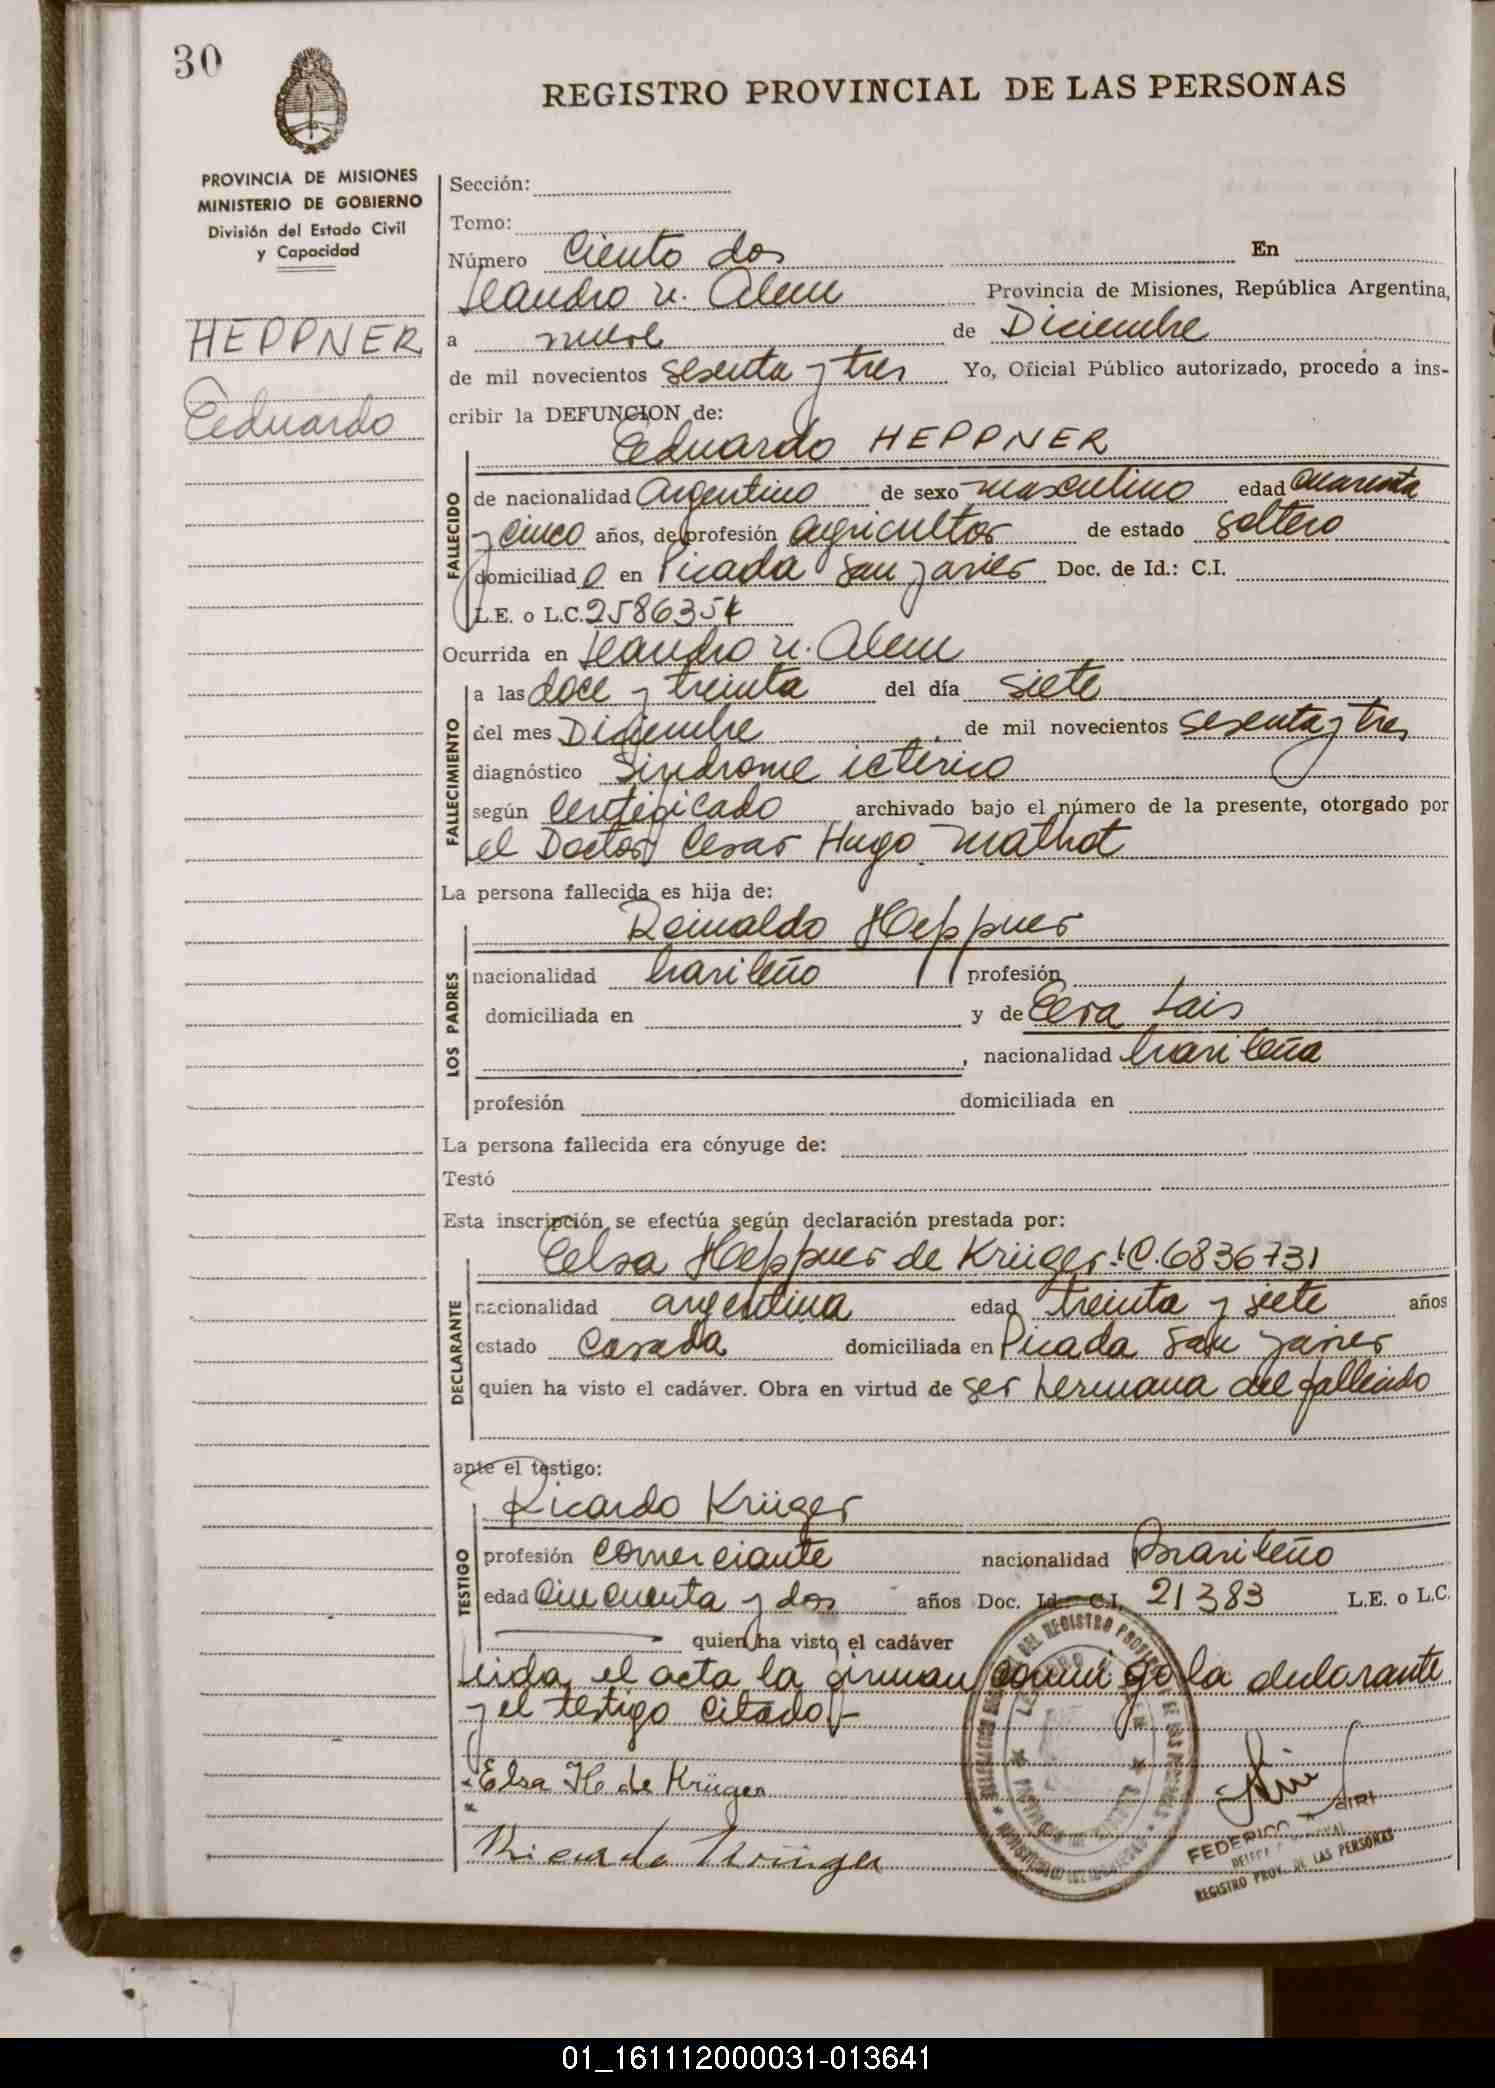 30
REGISTRO PROVINCIAL DE LAS PERSONAS
PROVINCIA DE MISIONES
MINISTERIO DE GOBIERNO
División del Estado Civil
y Capacidad
HEPPNER
Eduardo
Sección:
Tomo:
Número Ciento dos En
Leandro N. Alem Provincia de Misiones, República Argentina,
a nueve de Diciembre
de mil novecientos sesenta y tres Yo, Oficial Público autorizado, procedo a ins-
cribir la DEFUNCION de:
Eduardo HEPPNER
FALLECIDO
de nacionalidad Argentino de sexo masculino edad cuarenta
y cinco años, de profesión agricultor de estado soltero
domiciliado en Picada San Javier Doc. de Id.: C.I.
L.E. o L.C. 2586354
Ocurrida en Leandro N. Alem
FALLECIMIENTO
a las doce y treinta del día siete
del mes Diciembre de mil novecientos sesenta y tres
diagnóstico Sindrome icterico
según certificado archivado bajo el número de la presente, otorgado por
el Doctor Cesar Hugo Mathot
La persona fallecida es hija de:
LOS PADRES
Reinaldo Heppner
nacionalidad brasileño profesión
domiciliada en y de Elsa Lais
, nacionalidad brasileña
profesión domiciliada en
La persona fallecida era cónyuge de:
Testó
Esta inscripción se efectúa según declaración prestada por:
DECLARANTE
Elsa Heppner de Krüger L.C. 6836731
nacionalidad argentina edad treinta y siete años
estado casada domiciliada en Picada San Javier
quien ha visto el cadáver. Obra en virtud de ser hermana del fallecido
ante el testigo:
TESTIGO
Ricardo Krüger
profesión comerciante nacionalidad Brasileño
edad cincuenta y dos años Doc. Id.: C.I. 21383 L.E. o L.C.
quien ha visto el cadáver
Leida el acta la firman conmigo la declarante
y el testigo citado.-
Elsa H. de Krüger
Ricardo Krüger
FEDERICO SIRI
REGISTRO PROV. DE LAS PERSONAS
01_161112000031-013641